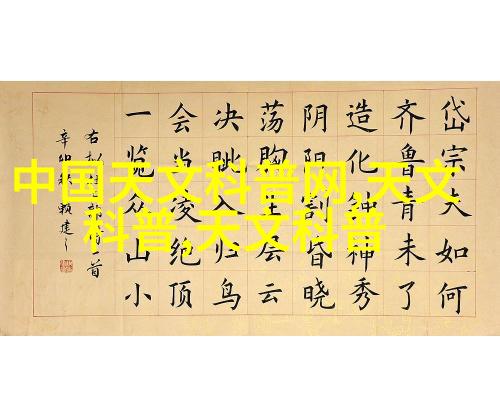 中国天文科普网,天文
科普,天文科普
岱宗夫如何
齐鲁青未了
造化钟神秀
阴阳割昏晓
荡胸生层云
决眦入归鸟
会当凌绝顶
一览众山小
右 一首
辛卯 赖建